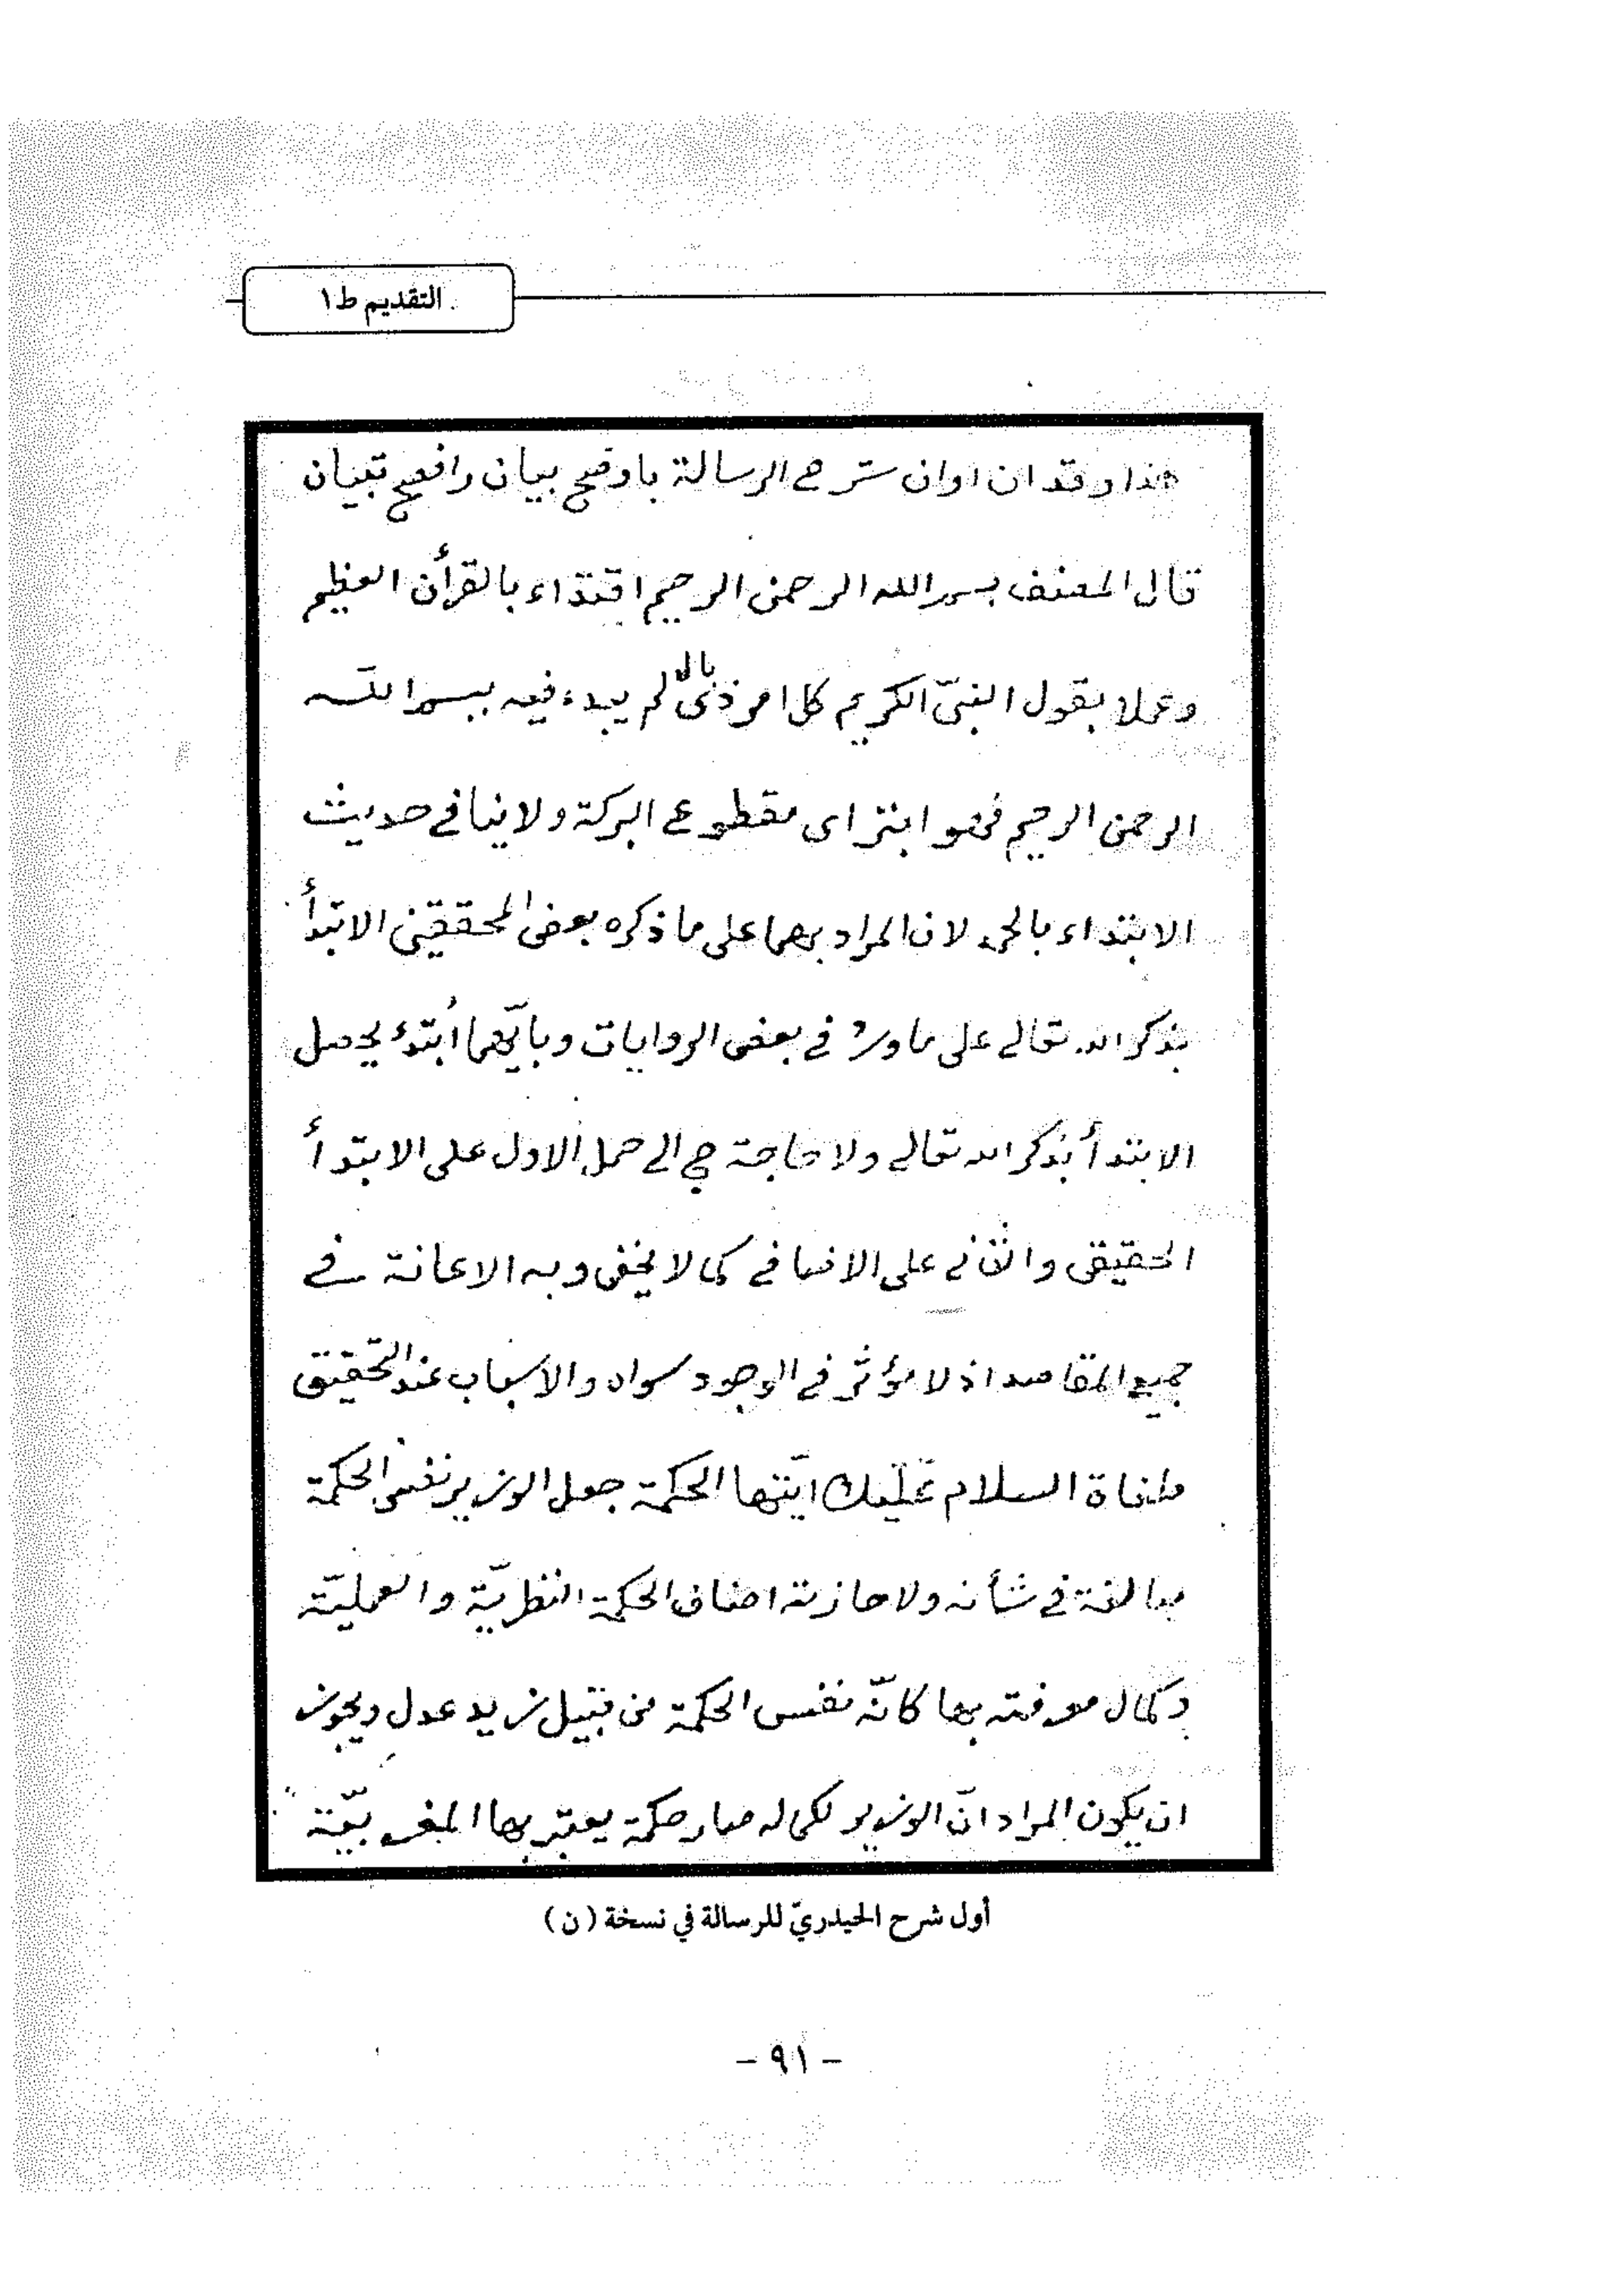 التقديم ط١
هذا وقد ان اوان شرح الرسالة باوضح بيان وافصح تبيان
قال المصنف بسم الله الرحمن الرحيم اقتداء بالقرأن العظيم
وعملا بقول النبىّ الكريم كل امر ذى بال لم يبدء فيه ببسم اللّه
الرحمن الرحيم فهو ابتر اى مقطوع البركة ولا ينافى حديث
الابتداء بالحمد لان المراد بهما على ما ذكره بعض المحققين الابتدأ
بذكر الله تعالى على ما ورد فى بعض الروايات وبايّهما ابتدئ يحصل
الابتدأ بذكر الله تعالى ولا حاجة ح الى حمل الاول على الابتدأ
الحقيقى والثانى على الاضافى كما لا يخفى وبه الاعانة فى
جميع المقاصد اذ لا مؤثر فى الوجود سواه والاسباب عند التحقيق
ملغاة السلام عليك ايّتها الحكمة جعل الوزير نفس الحكمة
مبالغة فى شأنه ولاحازته اصناف الحكمة النظريّة والعمليّة
وكمال معرفته بها كانّه نفس الحكمة من قبيل زيد عدل ويجوز
ان يكون المراد انّ الوزير لكماله صار حكمة يعتبر بها
أول شرح الحيدريّ للرسالة في نسخة (ن)
- ٩١ -